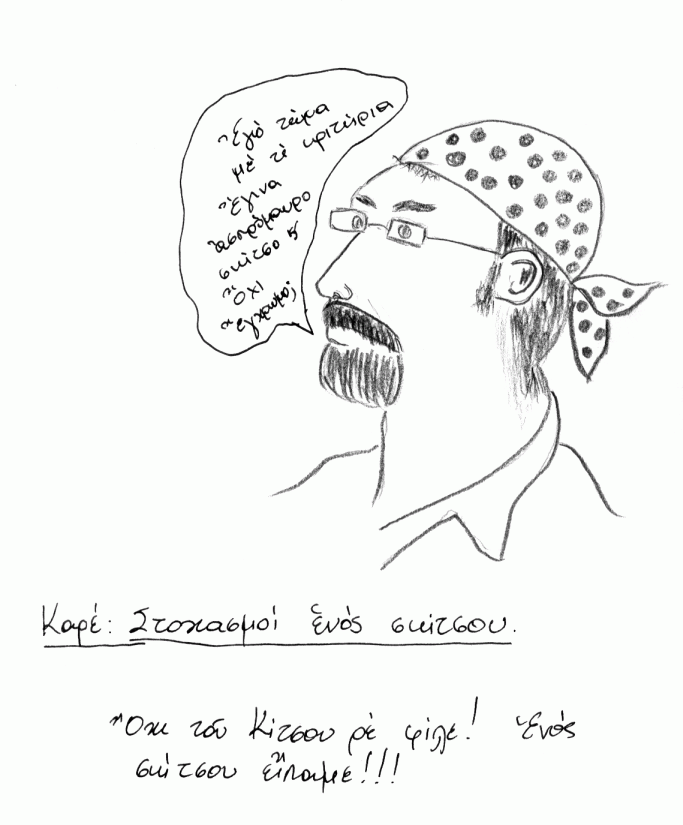 Ἐγώ τώρα
μέ τί κριτήρια
ἔγινα
ἀσπρόμαυρο
σκίτσο κ'
ὄχι
ἔγχρωμο;
Καρέ: Στοχασμοί ἑνός σκίτσου.
Ὄχι τοῦ Κίτσου ρέ φίλε! Ἑνός
σκίτσου εἴπαμε!!!